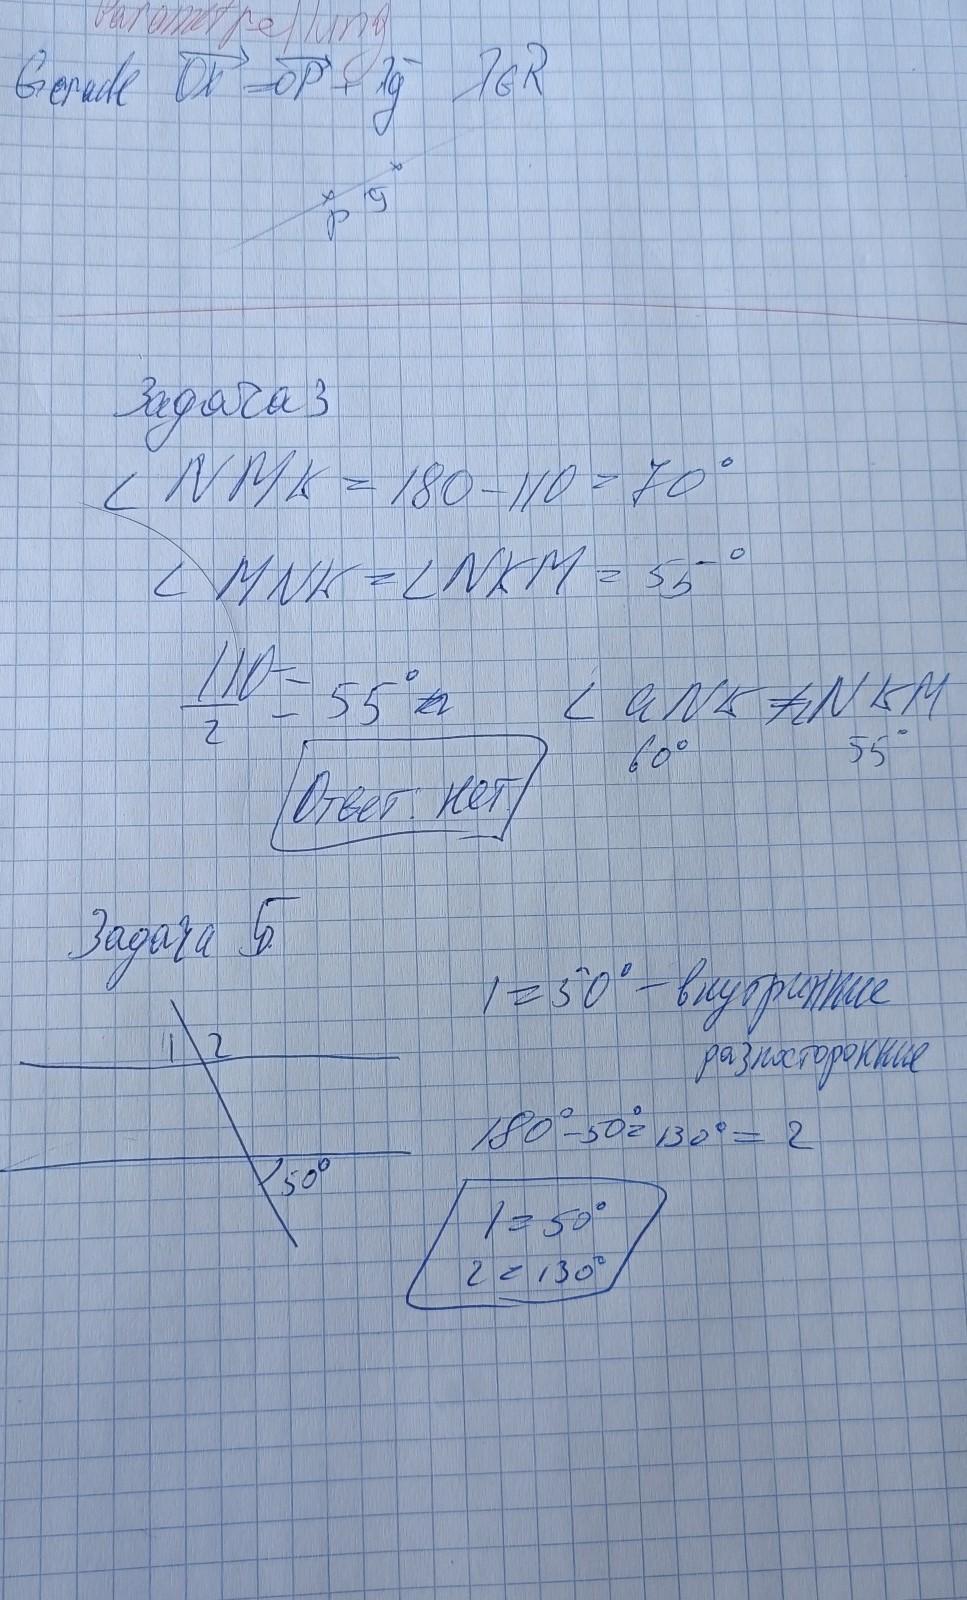 Gerade OX = OP + λg λ∈R
P g
Задача 3
∠ NMK = 180 - 110 = 70°
∠ MNK = ∠ NKM = 55°
110/2 = 55°
∠ aNK ≠ NKM
60° 55°
Ответ: нет
Задача 5
1 = 50° - внутринние
разносторонние
1 2
180° - 50° = 130° = 2
50°
1 = 50°
2 = 130°